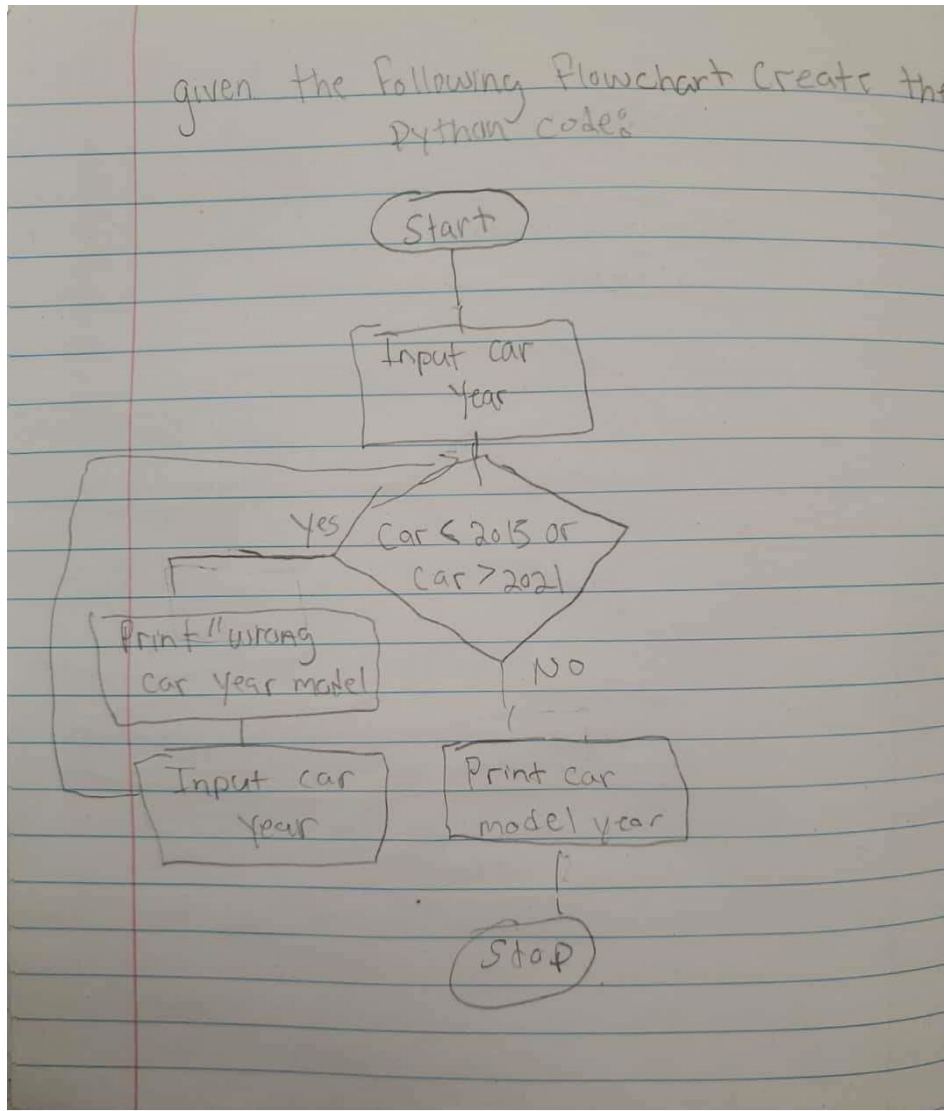 given the Following Flowchart Create the
Python code:
Start
Input car
Year
Yes
Car < 2015 or
Car > 2021
Print "wrong
car year model
NO
Input car
year
Print car
model year
Stop